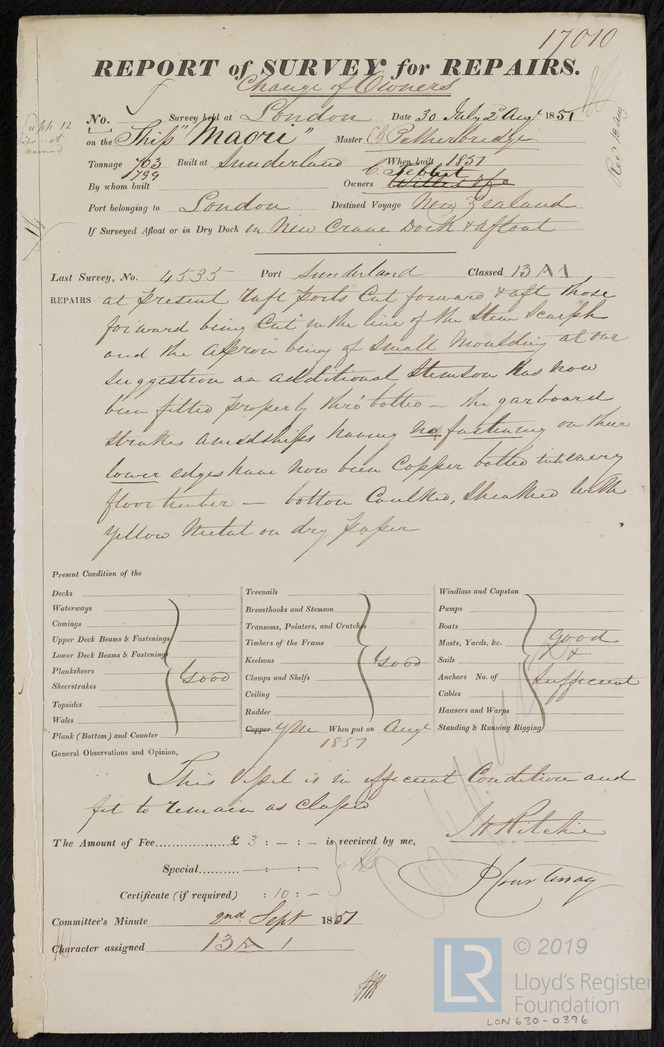 17010
REPORT of SURVEY for REPAIRS.
Change of Owners
No. Survey held at London Date 30 July 2d Augt 1851
on the Ship "Maori" Master Petherbridge
Tonnage 703 Built at Sunderland When built 1851
799
By whom built Owners
Port belonging to London Destined Voyage New Zealand
If Surveyed Afloat or in Dry Dock in New Crane Dock & afloat
Last Survey, No. 4535 Port Sunderland Classed 13 A 1
REPAIRS at present Raft ports Cut forward & aft those
forward being Cut in the line of the Stem Scarph
and the Apron being of small Moulding at our
suggestion an additional Stemson has now
been fitted properly thro' bolted – the garboard
strakes amidships having no fastening on their
lower edges have now been Copper bolted to every
floor timber – bottom Caulked, Sheathed with
Yellow Metal on dry paper
Present Condition of the
Decks
Waterways
Comings
Upper Deck Beams & Fastenings
Lower Deck Beams & Fastenings
Planksheers
Sheerstrakes
Topsides
Wales
Plank (Bottom) and Counter
Good
Treenails
Breasthooks and Stemson
Transoms, Pointers, and Crutches
Timbers of the Frame
Keelsons
Clamps and Shelfs
Ceiling
Rudder
Copper YM When put on Augt
1851
Good
Windlass and Capstan
Pumps
Boats
Masts, Yards, &c.
Sails
Anchors No. of
Cables
Hawsers and Warps
Standing & Running Rigging
good
&
sufficient
General Observations and Opinion,
This Vessel is in efficient Condition and
fit to remain as Classed
The Amount of Fee £ 3 : – : – is received by me,
J H Ritchie
Special : – : –
J Courtenay
Certificate (if required) : 10 : –
Committee's Minute 2nd Sept 1851
Character assigned 13 A 1
LR © 2019
Lloyd's Register
Foundation
LON 630-0396